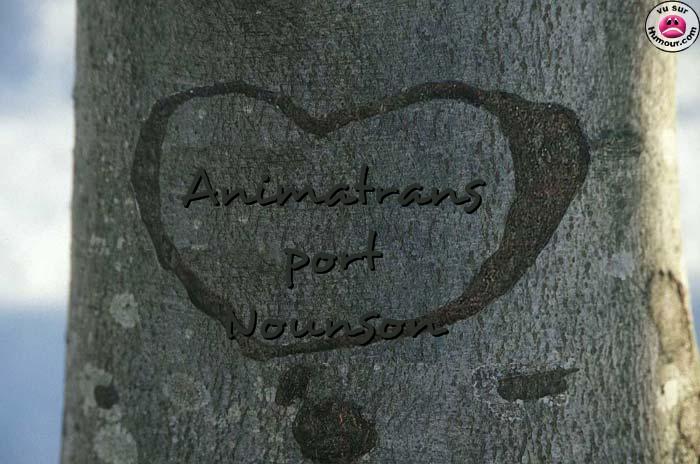 vu sur
Humour.com
Animatrans
port
Nounson